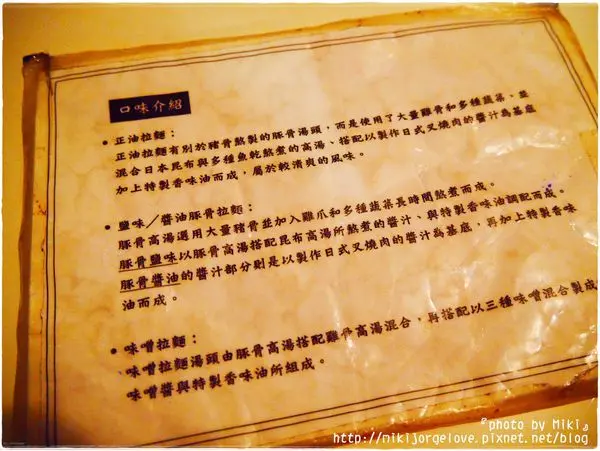 口味介紹
• 正油拉麵：
正油拉麵有別於豬骨熬製的豚骨湯頭，而是使用了大量雞骨和多種蔬菜、並
混合日本昆布與多種魚乾熬煮的高湯、搭配以製作日式叉燒肉的醬汁為基底
加上特製香味油而成，屬於較清爽的風味。
• 鹽味／醬油豚骨拉麵：
豚骨高湯選用大量豬骨並加入雞爪和多種蔬菜長時間熬煮而成。
豚骨鹽味以豚骨高湯搭配昆布高湯所熬煮的醬汁、與特製香味油調配而成。
豚骨醬油的醬汁部分則是以製作日式叉燒肉的醬汁為基底，再加上特製香味
油而成。
• 味噌拉麵：
味噌拉麵湯頭由豚骨高湯搭配雞骨高湯混合，再搭配以三種味噌混合製成
味噌醬與特製香味油所組成。
『photo by Miki』
http://mikijorgelove.pixnet.net/blog